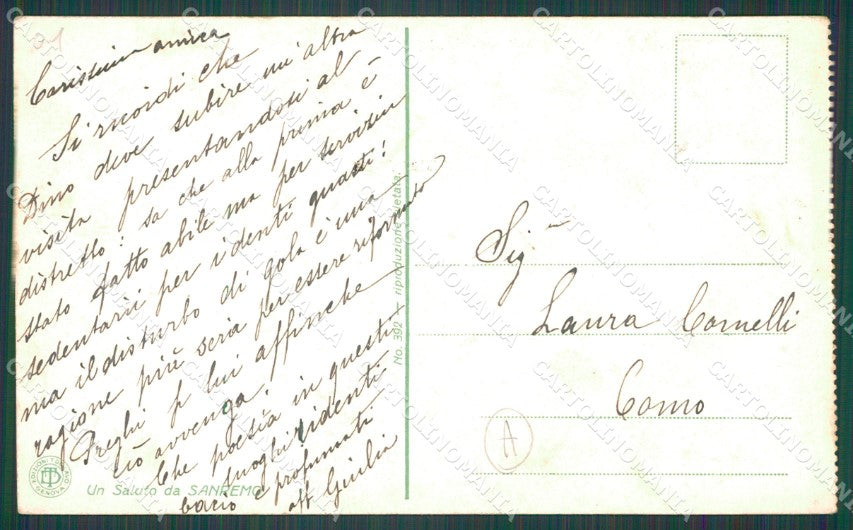 31
Carissima amica
Si ricordi che
Dino deve subire un'altra
visita presentandosi al
distretto: sa che alla prima è
stato fatto abile ma per servizii
sedentarii per i denti guasti!
ma il disturbo di gola è una
ragione più seria per essere riformato
Preghi p lui affinche
ciò avvenga.
Che poesia in questi
luoghi ridenti
e profumati
bacio aff Giulia
Un Saluto da SANREMO
No. 392 - riproduzione vietata.
Sig.na
Laura Comelli
Como
A
CARTOLINOMANIA